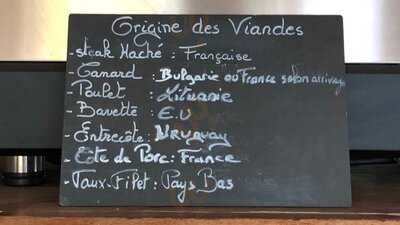 Origine des Viandes
- steak Haché : Française
- Canard : Bulgarie ou France selon arrivage
- Poulet : Lituanie
- Bavette : E.U
- Entrecôte : Uruguay
- Côte de Porc : France
- Faux-Filet : Pays Bas